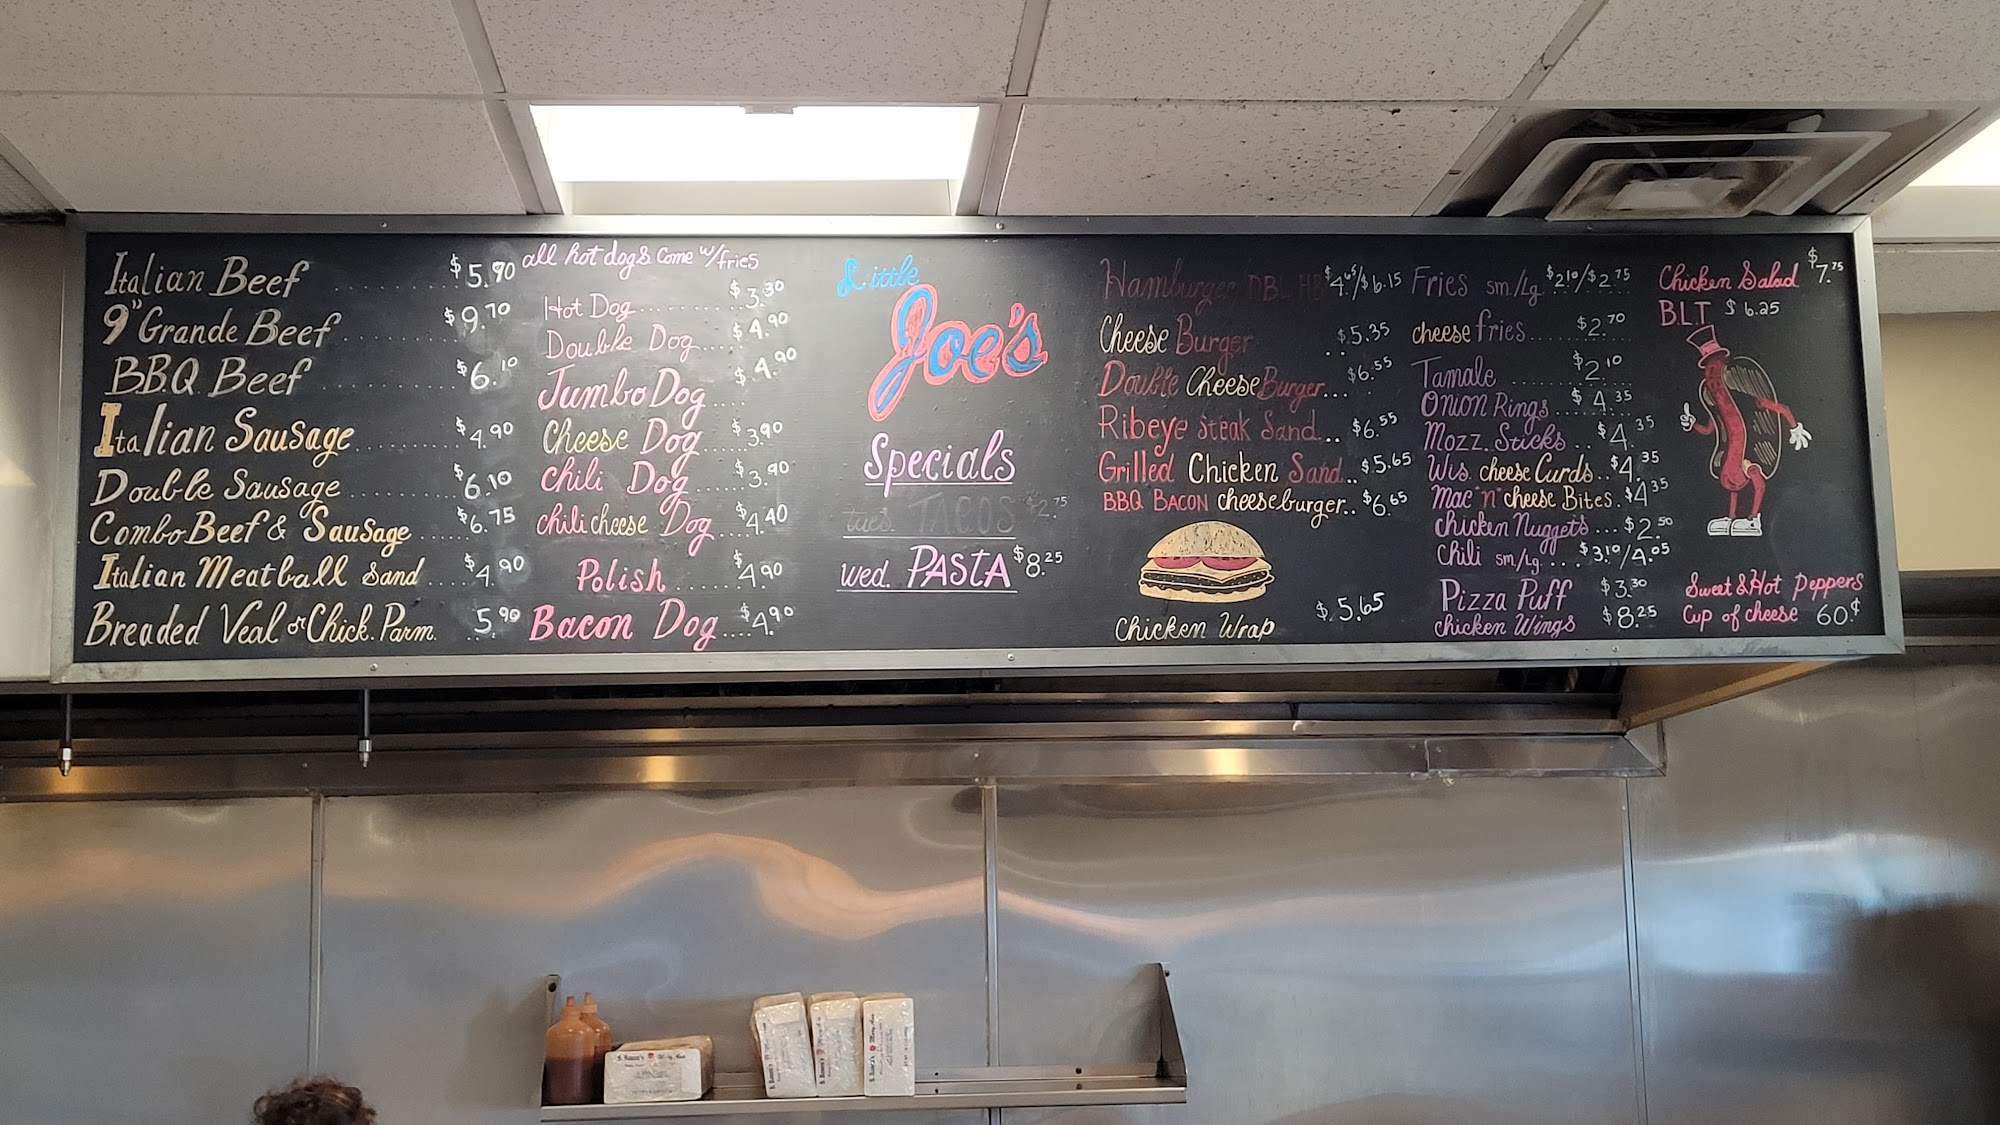 Italian Beef ........ $5.90
9" Grande Beef ........ $9.70
B.B.Q. Beef ........ $6.10
Italian Sausage ........ $4.90
Double Sausage ........ $6.10
Combo Beef & Sausage ..... $6.75
Italian Meatball Sand .... $4.90
Breaded Veal or Chick. Parm. .. 5.90
all hot dogs come w/fries
Hot Dog ........ $3.30
Double Dog .... $4.90
Jumbo Dog .... $4.90
Cheese Dog .... $3.90
Chili Dog .... $3.90
chili cheese Dog .... $4.40
Polish ........ $4.90
Bacon Dog .... $4.90
Little
Joe's
Specials
tues. TACOS $2.75
wed. PASTA $8.25
Hamburger, DBL HB $4.65/$6.15
Cheese Burger .. $5.35
Double Cheese Burger... $6.55
Ribeye Steak Sand... $6.55
Grilled Chicken Sand.. $5.65
B.B.Q. BACON cheeseburger.. $6.65
Chicken Wrap $5.65
Fries sm./Lg. $2.10/$2.75
cheese fries ..... $2.70
Tamale ........ $2.10
Onion Rings ..... $4.35
Mozz. Sticks .. $4.35
Wis. cheese Curds .. $4.35
Mac "n" cheese Bites. $4.35
chicken Nuggets ... $2.50
Chili sm/Lg. ... $3.10/4.05
Pizza Puff $3.30
chicken Wings $8.25
Chicken Salad $7.75
B.L.T $6.25
Sweet & Hot Peppers
Cup of cheese 60¢